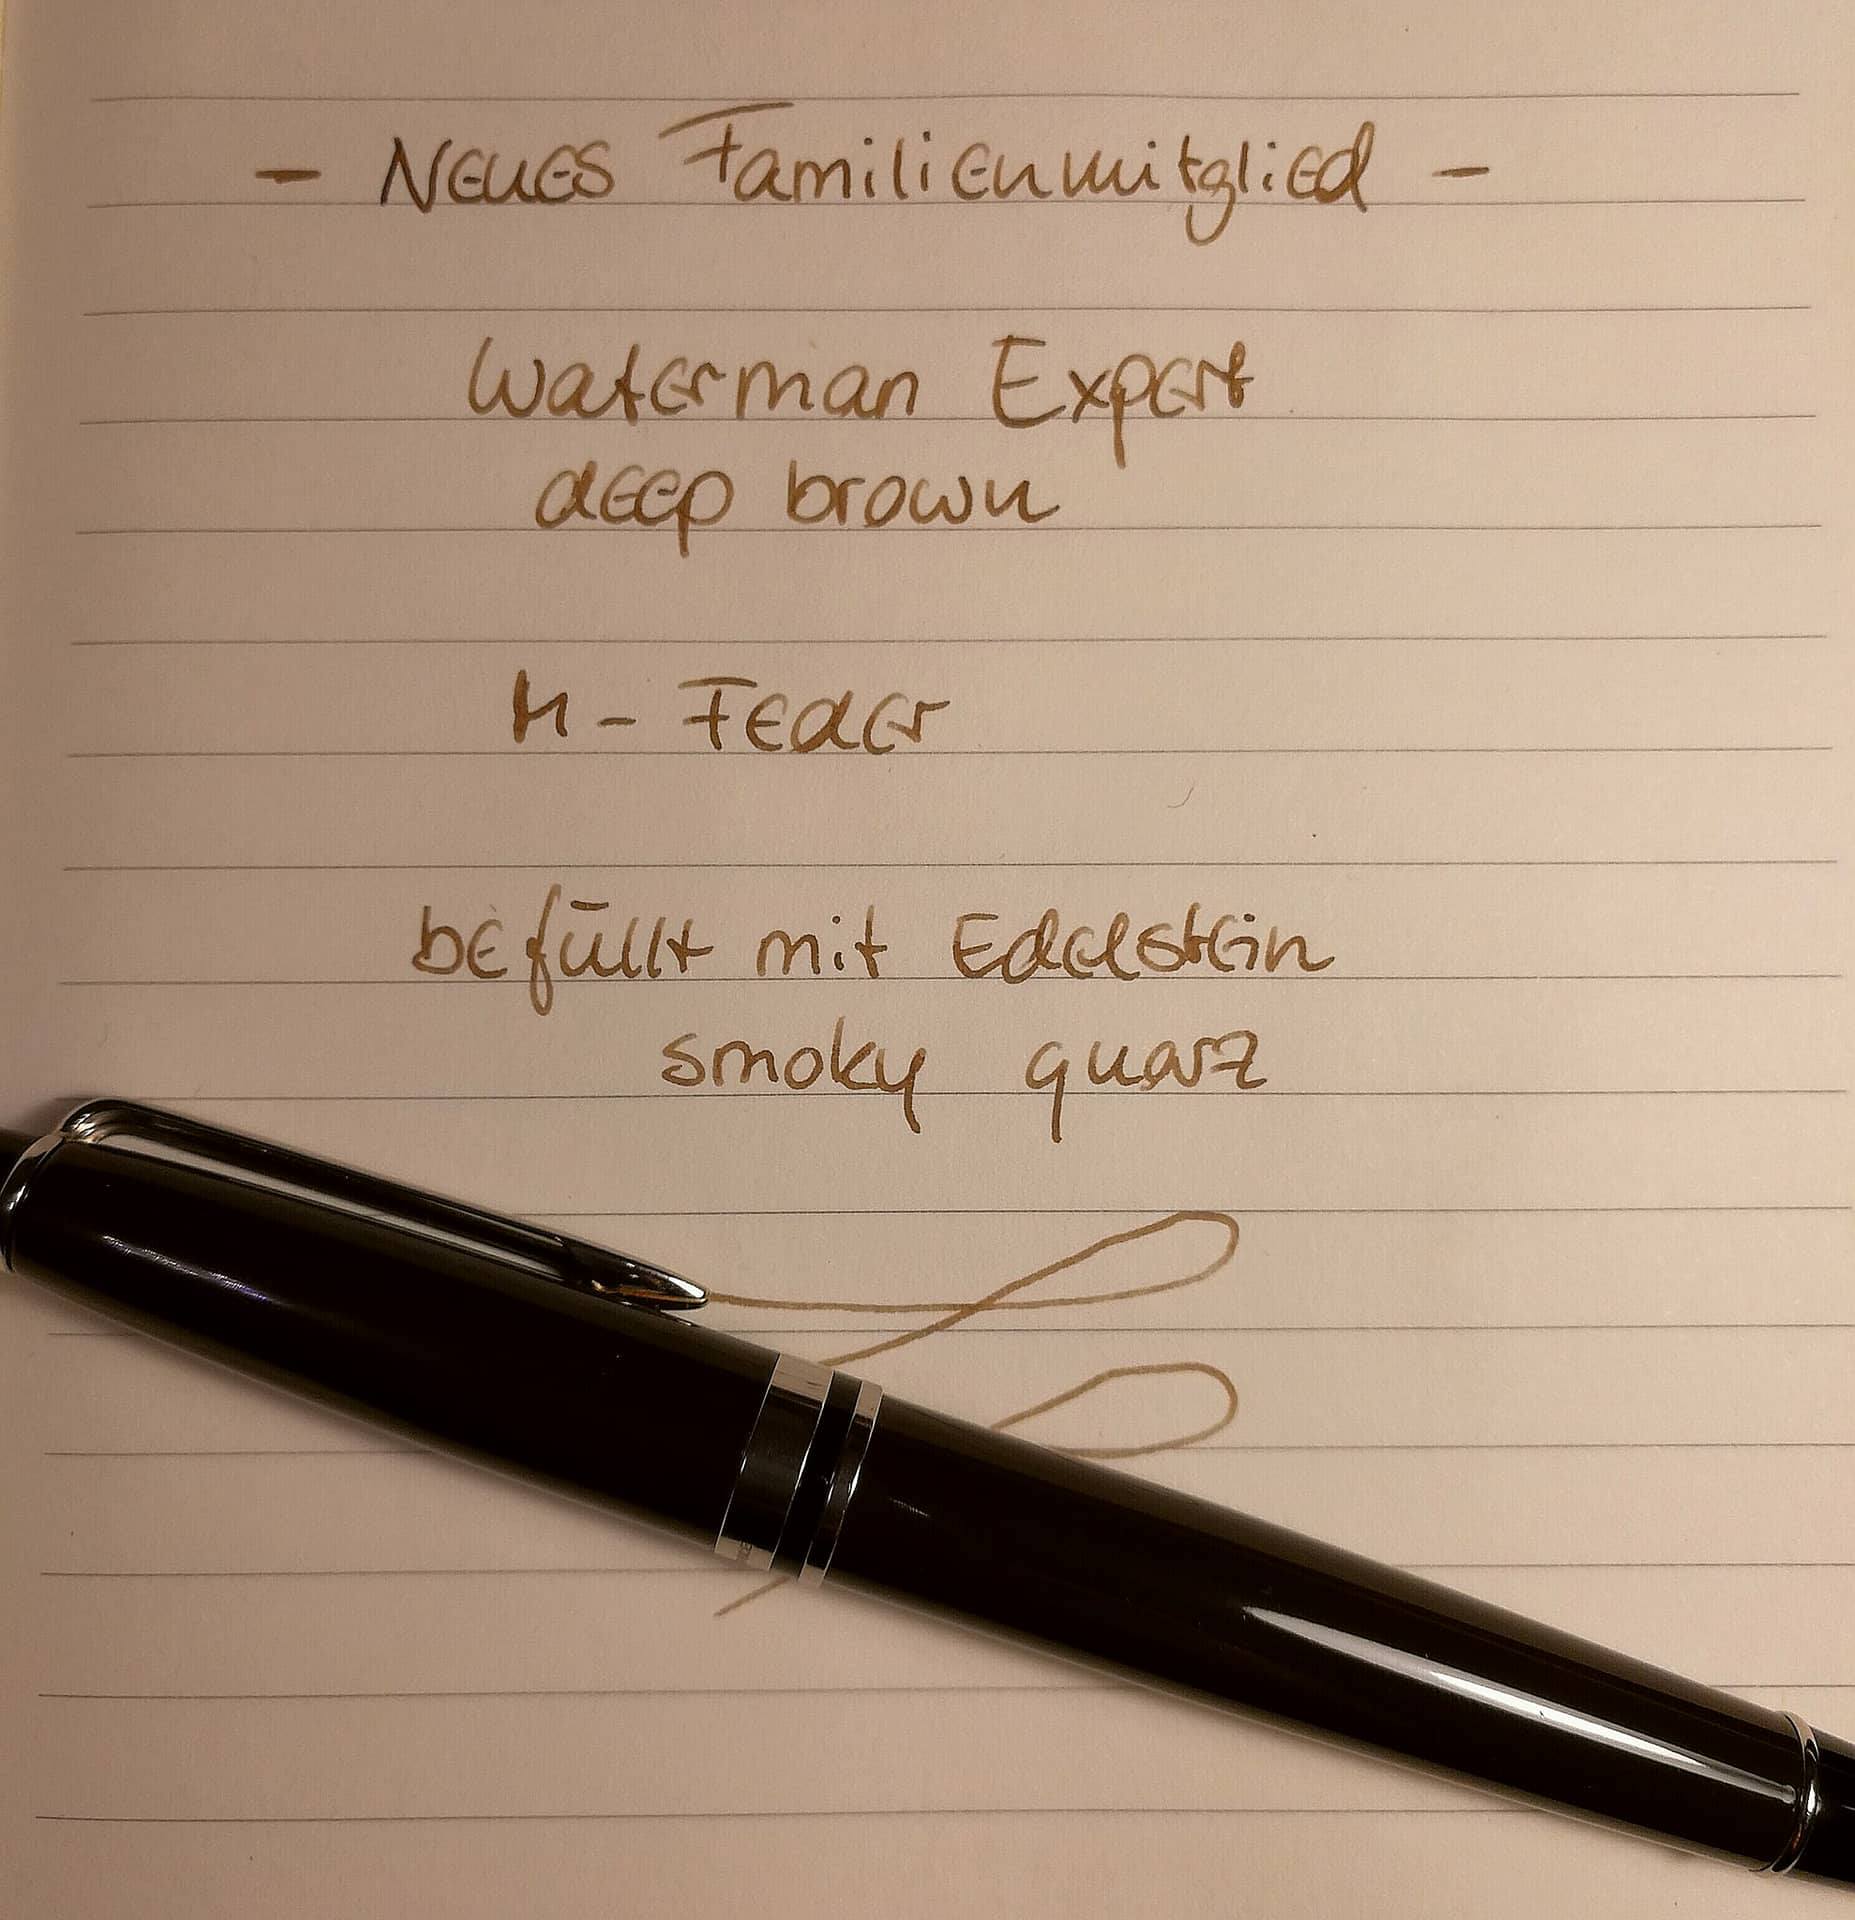 - Neues Familienmitglied -
Waterman Expert
deep brown
M - Feder
befüllt mit Edelstein
smoky quarz